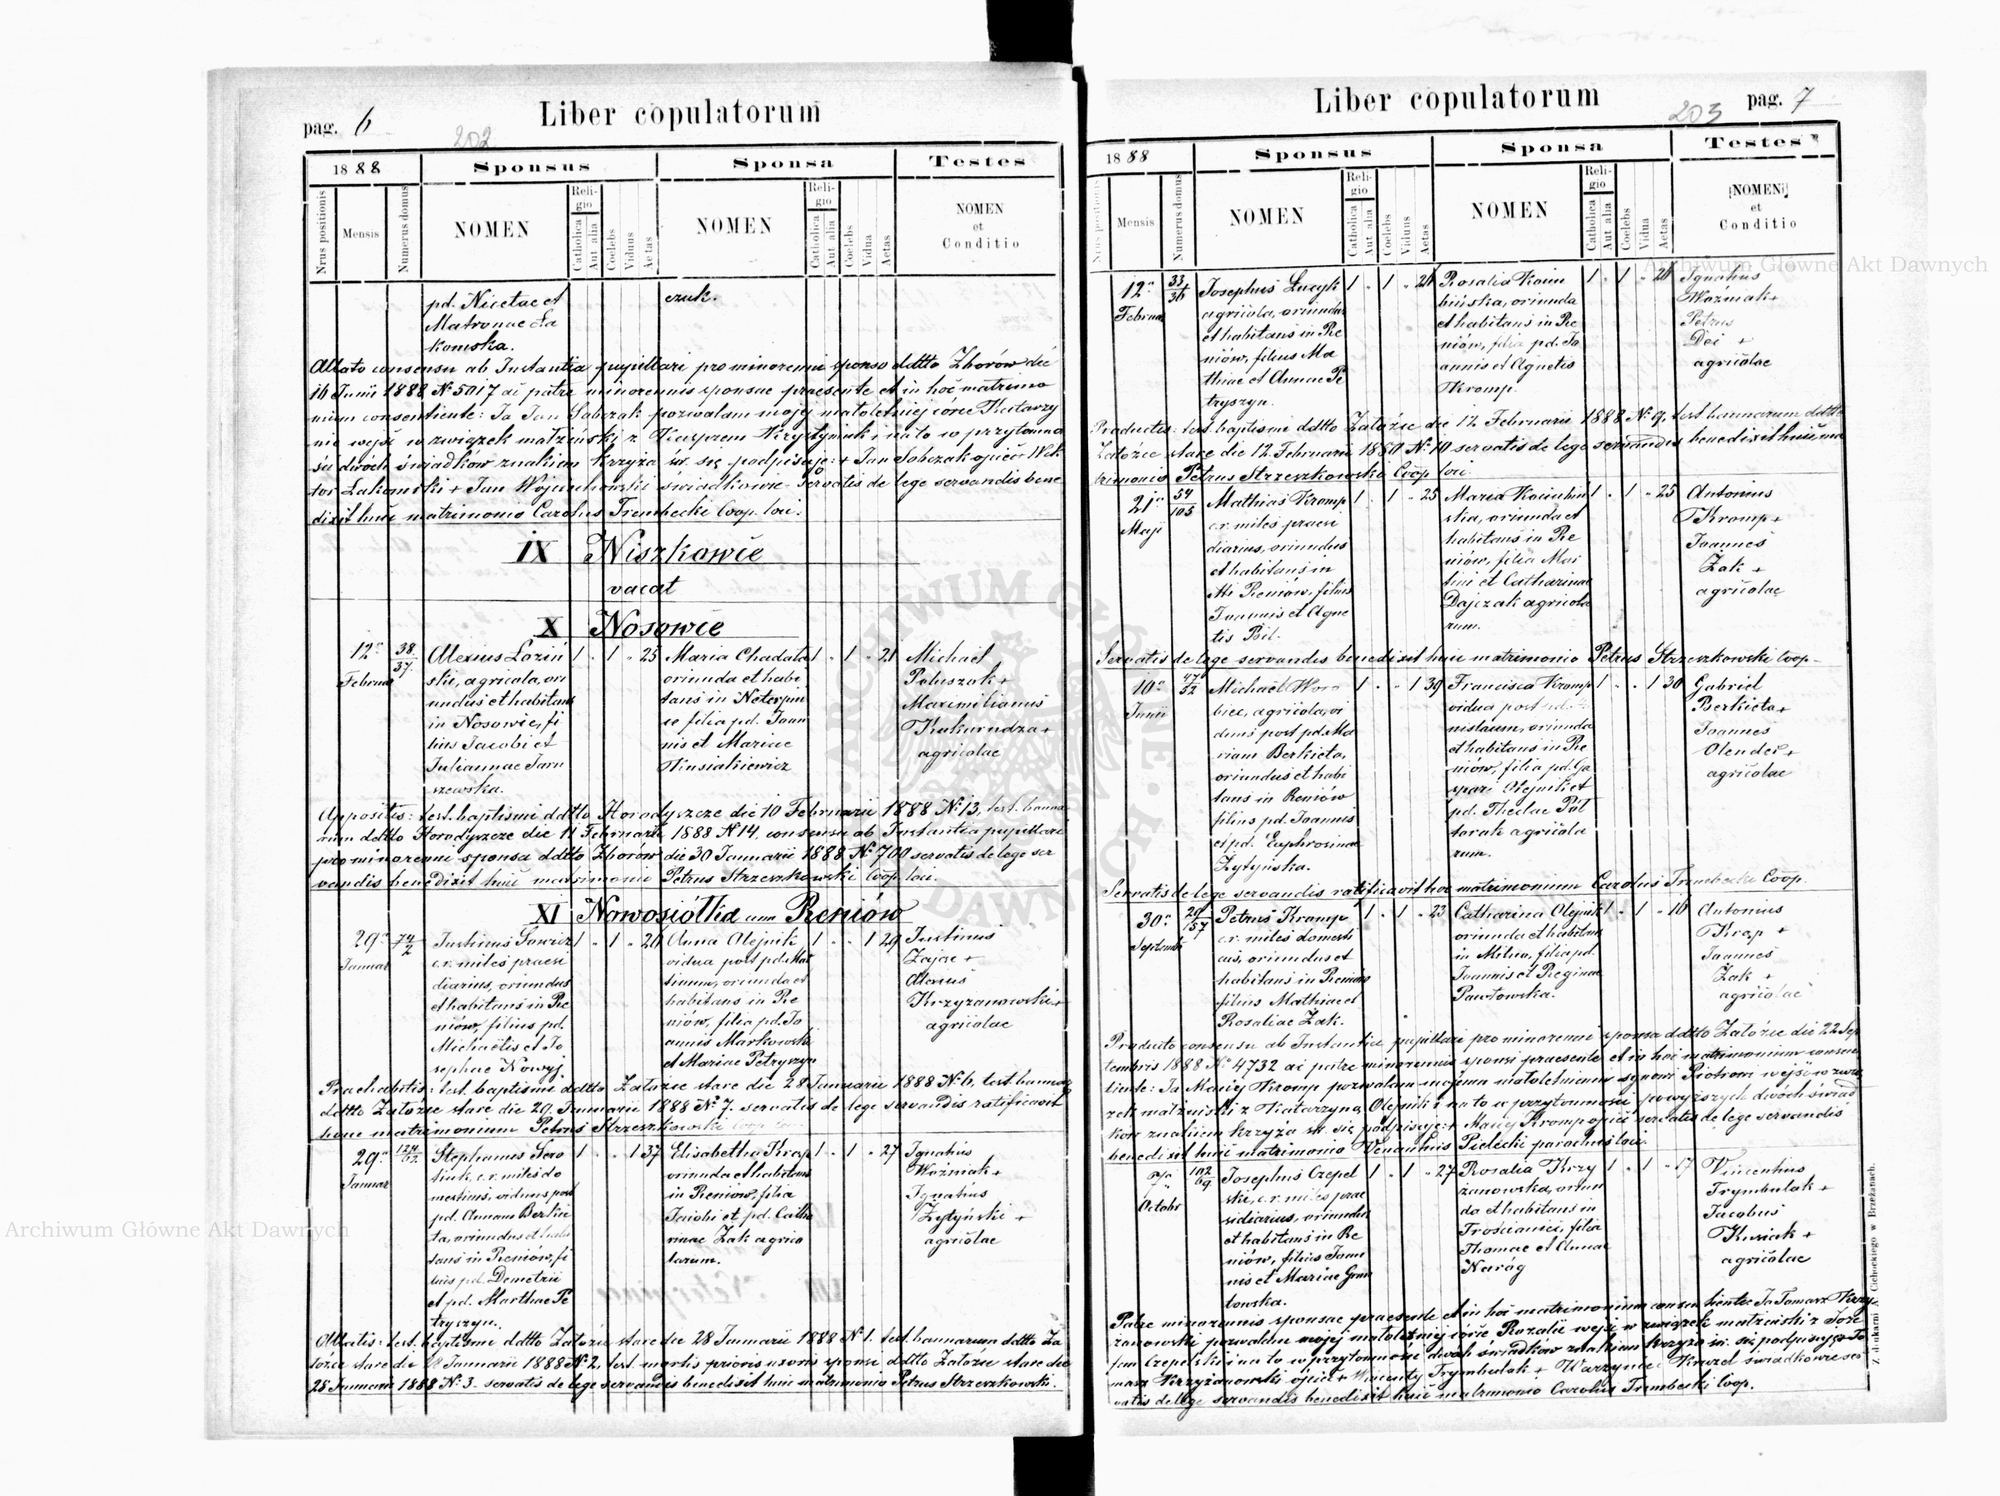 pag. 6
202
Liber copulatorum
1888
Sponsus
Sponsa
Testes
Nrus positionis
Mensis
Numerus domus
NOMEN
Religio
Catholica
Aut alia
Coelebs
Viduus
Aetas
NOMEN
Religio
Catholica
Aut alia
Coelebs
Vidua
Aetas
NOMEN
et
Conditio
pd. Nicetae et
Matronae Ła
komska.
czuk.
Allato consensu ab Instantia pupillari pro minorenni sponso ddtto Zborów die
16 Junii 1888 N 5017 ac patre minorennis sponsae praesente et in hoc matrimo
nium consentiente: Ja Jan Sobczak pozwalam mojej małoletniej córce Katarzy
nie wejść w związek małżeński z Kasprem Krystyniuk i na to w przytomno
ści dwóch świadków znakiem krzyża św. się podpisuję: + Jan Sobczak ojciec Wik
tor Łakomski + Jan Wojciechowski świadkowie - Servatis de lege servandis bene
dixit huic matrimonio Carolus Trembecki Coop. loci.
IX Niszkowce
vacat
X Nosowce
12a
Februar
38
37
Alexius Łoziń
ski, agricola, ori
undus et habitans
in Nosowce, fi
lius Jacobi et
Juliannae Jaru
szewska.
1 1 25
Maria Chadała
oriunda et habi
tans in Neterpin
ce filia pd. Joan
nis et Mariae
Kusiakiewicz
1 1 21
Michael
Paluszak +
Maximilianus
Kukurudza +
agricolae
Appositis: test. baptismi ddtto Horodyszcze die 10 Februarii 1888 N 13, test. banna
rum ddtto Horodyszcze die 12 Februarii 1888 N 14, consensu ab Instantia pupillari
pro minorenni sponsa ddtto Zborów die 30 Januarii 1888 N 700 servatis de lege ser
vandis benedixit huic matrimonio Petrus Strzeszkowski Coop. loci.
XI Nowosiółka cum Reniów
29a
Januar
74
2
Justinus Sowicz
c.r. miles praesi
diarius, oriundus
et habitans in Re
niów, filius pd.
Michaelis et Jo
sephae Nowyj.
1 1 26
Anna Olejnik
vidua post pd. Mar
tinum, oriunda et
habitans in Re
niów, filia pd. Jo
annis Markowski
et Mariae Petryszyn
1 1 29
Justinus
Zając +
Alexius
Krzyzanowski +
agricolae
Praehabitis: test. baptismi ddtto Załoźce stare die 28 Januarii 1888 N 6, test. bannar.
ddtto Załoźce stare die 29 Januarii 1888 N 7. servatis de lege servandis ratificavit
hunc matrimonium Petrus Strzeszkowski Coop. loci.
29a
Januar
Stephanus Sero
tiuk, c.r. miles do
mesticus, viduus post
pd. Annam Berkie
ta, oriundus et habi
tans in Reniów, fi
lius pd. Demetrii
et pd. Marthae Pe
tryszyn.
1 1 37
Elisabetha Krap
oriunda et habitans
in Reniów, filia
Jacobi et pd. Catha
rinae Żak agrico
larum.
1 1 27
Ignatius
Woźniak +
Ignatius
Żytyński +
agricolae
Allatis: test. baptismi ddtto Załoźce stare die 28 Januarii 1888 N 1. test. bannarum ddtto Za
łoźce stare die 28 Januarii 1888 N 2, test. mortis prioris uxoris sponsi ddtto Załoźce stare die
28 Januarii 1888 N 3 - servatis de lege servandis benedixit huic matrimonio Petrus Strzeszkowski.
Liber copulatorum
203
pag. 7
1888
Sponsus
Sponsa
Testes
Nrus positionis
Mensis
Numerus domus
NOMEN
Religio
Catholica
Aut alia
Coelebs
Viduus
Aetas
NOMEN
Religio
Catholica
Aut alia
Coelebs
Vidua
Aetas
NOMEN
et
Conditio
12a
Februar
33
36
Josephus Łucyk
agricola, oriundus
et habitans in Re
niów, filius Ma
thiae et Annae Pe
tryszyn.
1 1 26
Rosalia Kociu
bińska, oriunda
et habitans in Re
niów, filia pd. Jo
annis et Agnetis
Kromp.
1 1 20
Ignatius
Woźniak +
Petrus
Dei +
agricolae
Productis: test. baptismi ddtto Załoźce die 12 Februarii 1888 N 9, test. bannarum ddtto
Załoźce stare die 12 Februarii 1880 N 10 servatis de lege servandis benedixit huic ma
trimonio Petrus Strzeszkowski Coop. loci.
21a
Maji
54
105
Mathias Kromp
c.r. miles praesi
diarius, oriundus
et habitans in
Reniów, filius
Joannis et Agne
tis Bil.
1 1 25
Maria Kociubiń
ska, oriunda et
habitans in Re
niów, filia Mar
tini et Catharinae
Dajczak agricola
rum.
1 1 25
Antonius
Kromp +
Joannes
Żak +
agricolae
Servatis de lege servandis benedixit huic matrimonio Petrus Strzeszkowski Coop.
10a
Junii
47
52
Michael Woro
biec, agricola, vi
duus post pd. Ma
riam Berkieta,
oriundus et habi
tans in Reniów
filius pd. Joannis
et pd. Euphrosinae
Żytyńska.
1 1 39
Francisca Kromp
vidua post pd.
nislaum, oriunda
et habitans in Re
niów, filia pd. Ga
spari Olejnik et
pd. Theclae Pół
torak agricola
rum.
1 1 30
Gabriel
Berkieta +
Joannes
Olender +
agricolae
Servatis de lege servandis ratificavit hoc matrimonium Carolus Trembecki Coop.
30a
Septembr
29
157
Petrus Kromp
c.r. miles domesti
cus, oriundus et
habitans in Reniów
filius Mathiae et
Rosaliae Żak.
1 1 23
Catharina Olejnik
oriunda et habitans
in Milno, filia pd.
Joannis et Reginae
Pawłowska.
1 1 16
Antonius
Krap +
Joannes
Żak +
agricolae
Producto consensu ab Instantia pupillari pro minorenni sponsa ddtto Załoźce die 22 Sep
tembris 1888 N 4732 ac patre minorennis sponsi praesente et in hoc matrimonium consen
tiente: Ja Maciej Kromp pozwalam mojemu małoletniemu synowi Piotrowi wejść w zwią
zek małżeński z Katarzyną Olejnik i na to w przytomności powyższych dwóch świad
ków znakiem krzyża św. się podpisuję: + Maciej Kromp ojciec servatis de lege servandis
benedixit huic matrimonio Venantius Pielecki parochus loci.
Octobr
102
69
Josephus Czepel
ski, c.r. miles prae
sidiarius, oriundus
et habitans in Re
niów, filius Joan
nis et Mariae Gron
kowska.
1 1 27
Rosalia Krzy
żanowska, oriun
da et habitans in
Trościaniec, filia
Thomae et Annae
Naróg
1 1 17
Vincentius
Trymbulak +
Jacobus
Kusiak +
agricolae
Patre minorennis sponsae praesente et in hoc matrimonium consentiente: Ja Tomasz Krzy
żanowski pozwalam mojej małoletniej córce Rozalii wejść w związek małżeński z Józe
fem Czepelski i na to w przytomności dwóch świadków znakiem krzyża św. się podpisuję: + To
masz Krzyżanowski ojciec + Wincenty Trymbulak + Wawrzyniec Kuszel świadkowie ser
vatis de lege servandis benedixit huic matrimonio Carolus Trembecki Coop.
Z drukarni A. Cichockiego w Brzeżanach.
Archiwum Główne Akt Dawnych
Archiwum Główne Akt Dawnych
ARCHIWUM GŁÓWNE AKT DAWNYCH